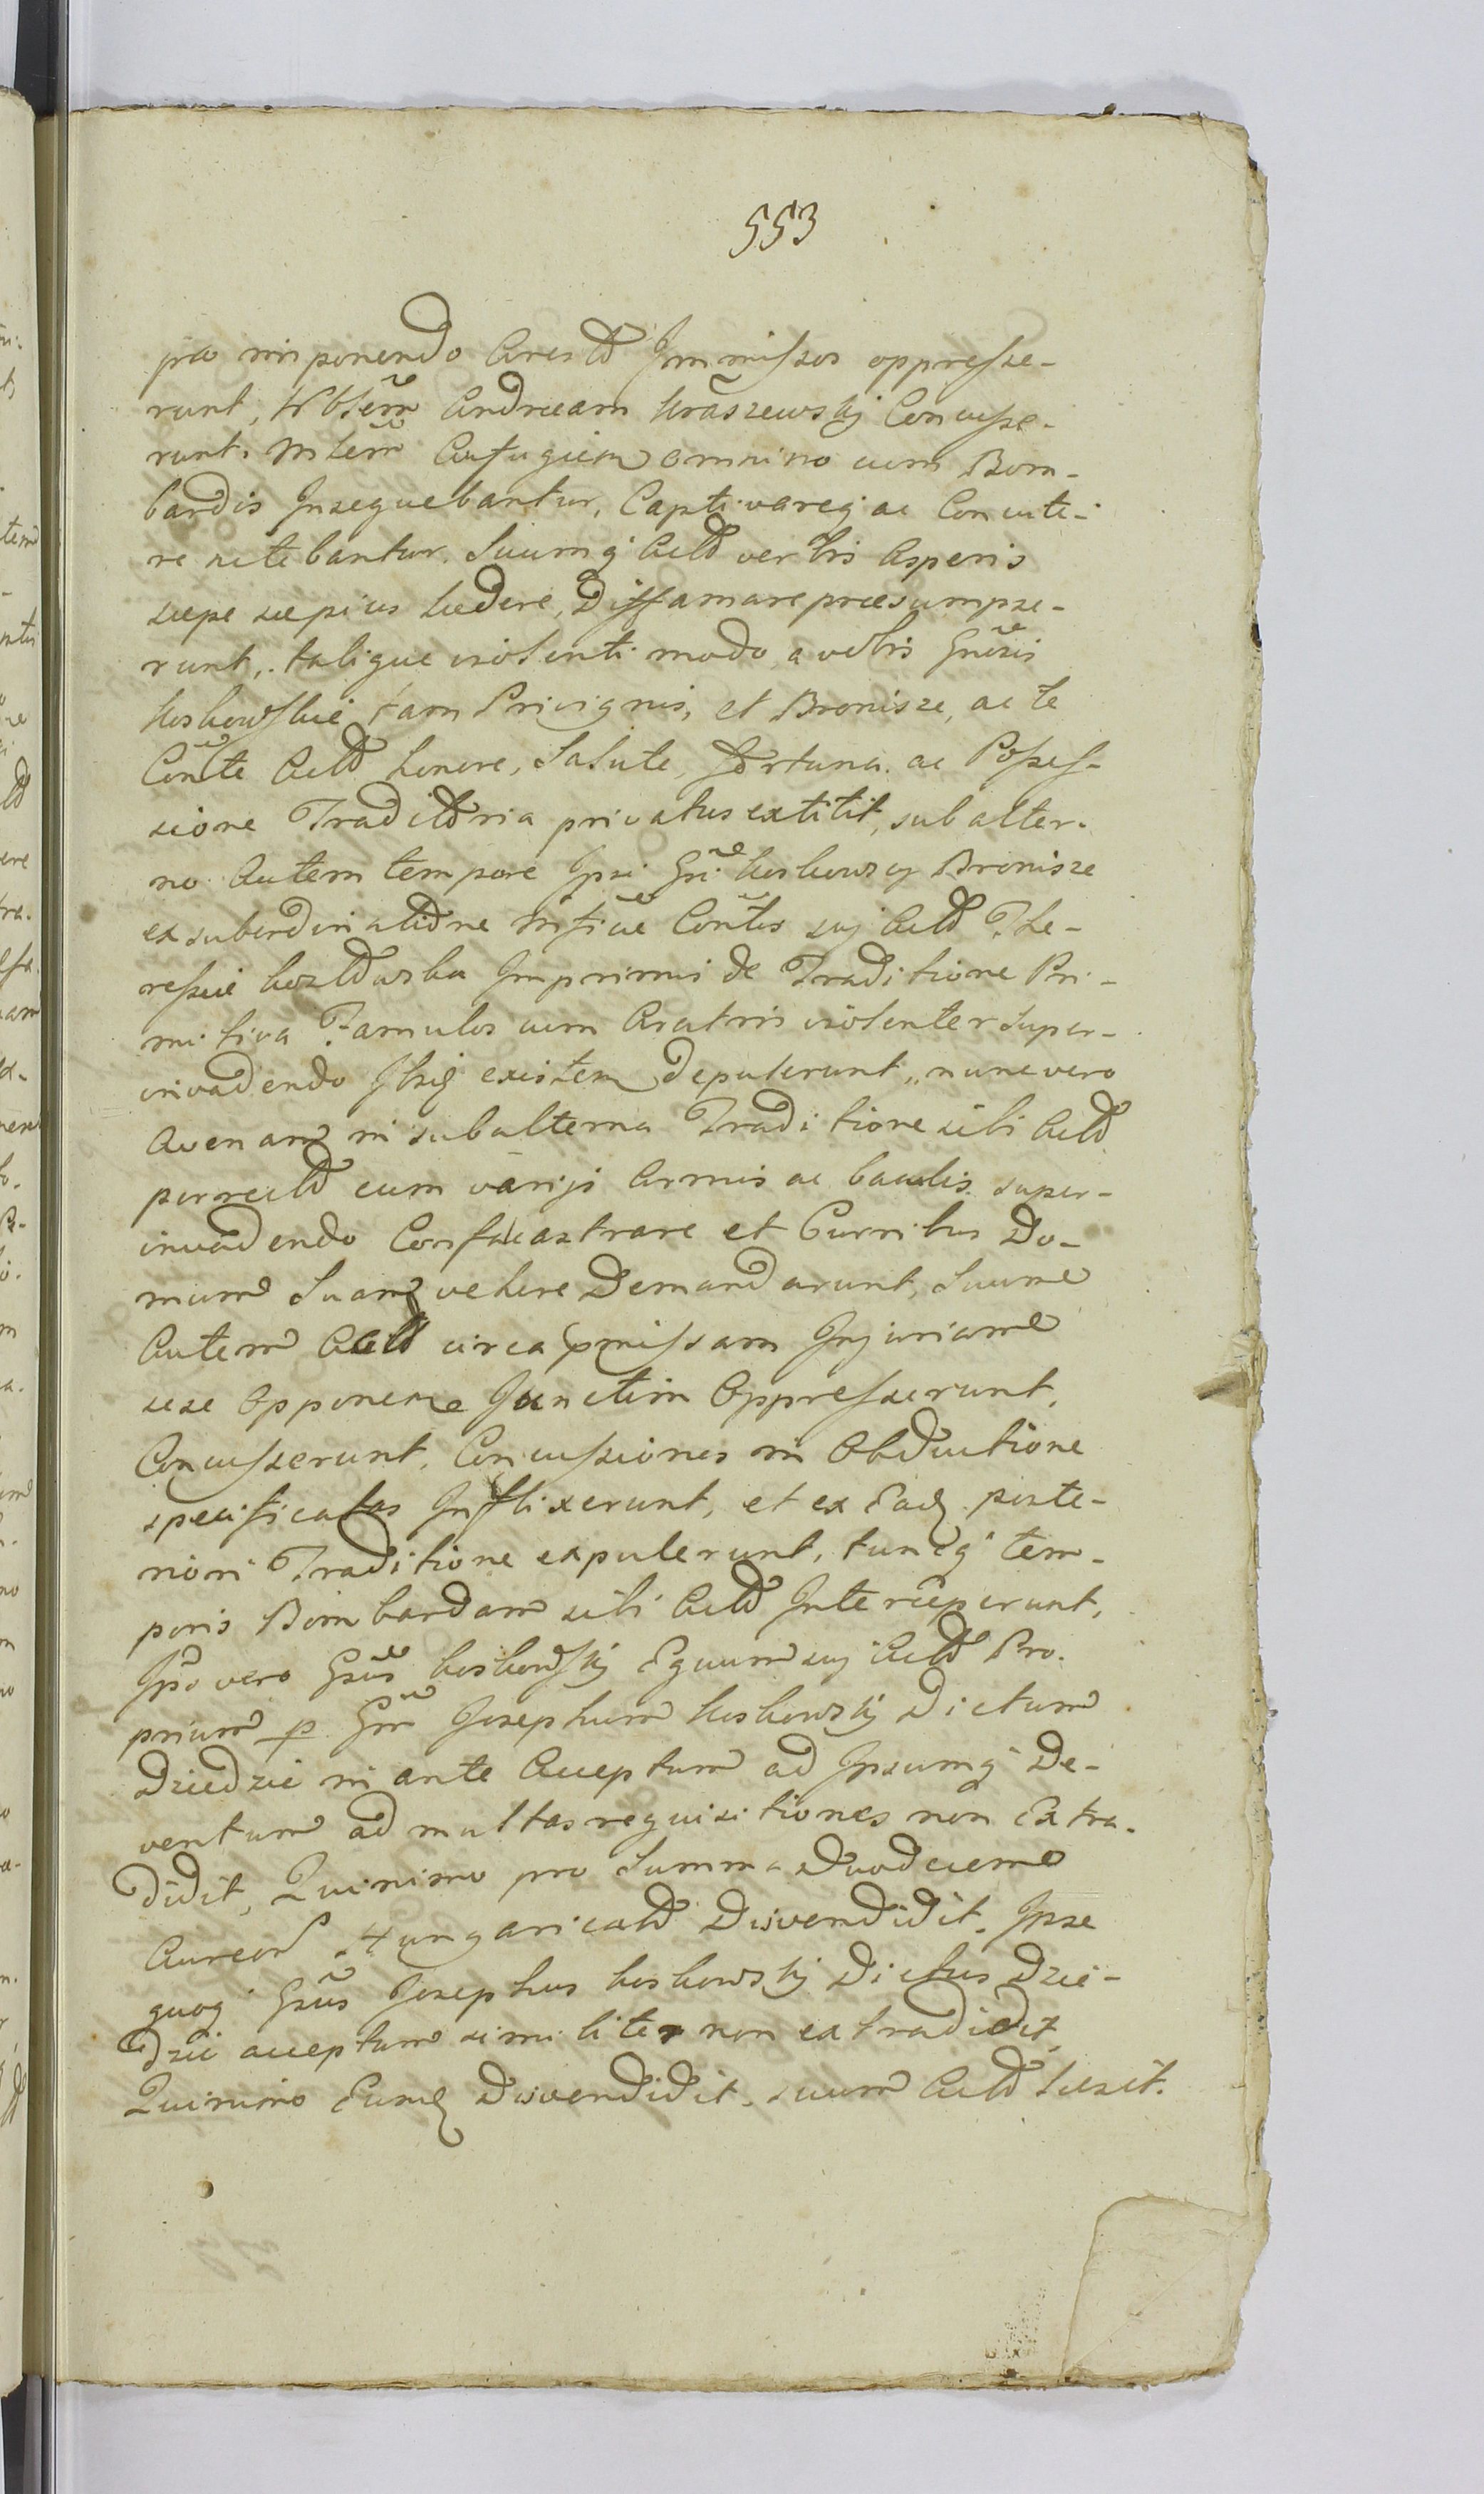 553
pro imponendo Aresto Immissos oppresse-
runt, Nobilem Andream Kraszewskij Concusse-
runt. Mtem Aufugiem omnino cum Bom-
bardis Insequebantur, Captivareq ac Concute-
re nitebantur. Suumq Acto verbis Asperis
saepe saepius ledere, Diffamare praesumpse-
runt, talique violenti modo a vobis Gnosis
Koskowskie tam Privignis, et Bronisze, ac te
Conte Acto honore, Salute, fortuna ac Posses-
sione Traditoria privatus extitit, sub alter-
no Autem tempore Ipsi Gni Koskowscy Bronisze
ex subordinatione Mficae Contis suj Acto The-
ressiae Imprimis de Traditione Pri-
mitiva Famulos cum Aratris violenter super-
invadendo Ibiq existem depulerunt, nunc vero
Avenam in subalterna Traditione sibi Acto
per recto cum varijs Armis ac baculis super-
invadendo Confalcastrare et Curribus Do-
mum Suam vehere Demandarunt, Suum
Autem Acto circa pmissam Injuriam
sese Opponeme Junctim Oppresserunt,
Concusserunt, Concussiones in Obductione
specificatas Inflixerunt, et ex Eadq poste-
riori Traditione expulerunt, tuncq tem-
poris Bombardam sibi Acto Interceperunt,
Ipse vero Gsus Koskowskij Equum suj Acto Pro-
prium p Gm Josephum Koskowskij Dictum
Dziedzic in ante Acceptum ad Ipsumq De-
ventum ad multas requisitiones non Extra-
didit, Quinimo pro Summa Duodecem
Aureor Hungaricalo Disvendidit. Ipse
quoq Gsus Josephus Koskowskij Dictus Dzie-
dzic acceptum similiter non extradidit
Quinimo Eumq Disvendidit, suum Acto Lesit.